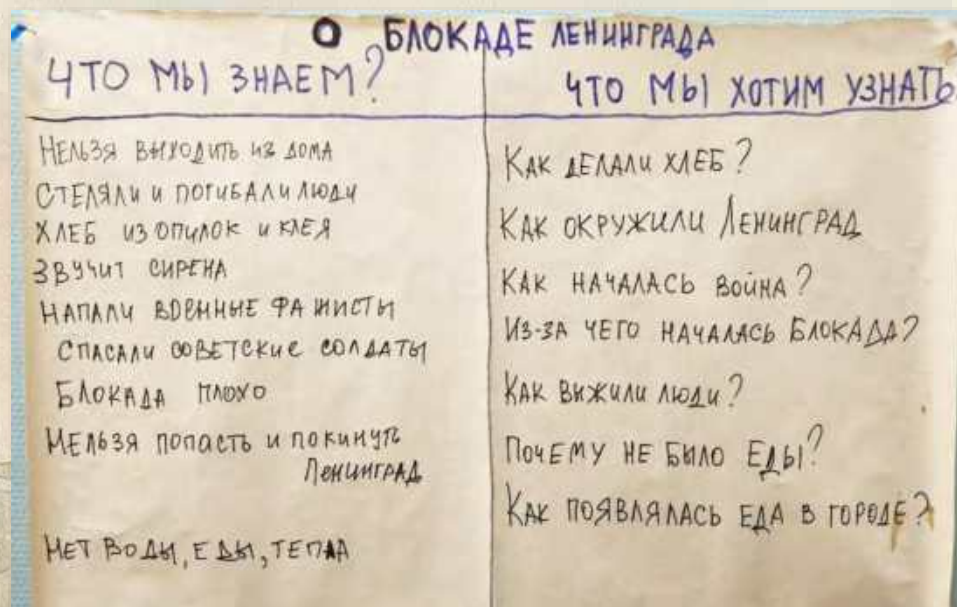 О БЛОКАДЕ ЛЕНИНГРАДА
ЧТО МЫ ЗНАЕМ?
НЕЛЬЗЯ ВЫХОДИТЬ ИЗ ДОМА
СТЕЛЯЛИ И ПОГИБАЛИ ЛЮДИ
ХЛЕБ ИЗ ОПИЛОК И КЛЕЯ
ЗВУЧИТ СИРЕНА
НАПАЛИ ВОЕННЫЕ ФАШИСТЫ
СПАСАЛИ СОВЕТСКИЕ СОЛДАТЫ
БЛОКАДА ПЛОХО
НЕЛЬЗЯ ПОПАСТЬ И ПОКИНУТЬ
ЛЕНИНГРАД
НЕТ ВОДЫ, ЕДЫ, ТЕПЛА
ЧТО МЫ ХОТИМ УЗНАТЬ
КАК ДЕЛАЛИ ХЛЕБ?
КАК ОКРУЖИЛИ ЛЕНИНГРАД
КАК НАЧАЛАСЬ ВОЙНА?
ИЗ-ЗА ЧЕГО НАЧАЛАСЬ БЛОКАДА?
КАК ВЫЖИЛИ ЛЮДИ?
ПОЧЕМУ НЕ БЫЛО ЕДЫ?
КАК ПОЯВЛЯЛАСЬ ЕДА В ГОРОДЕ?